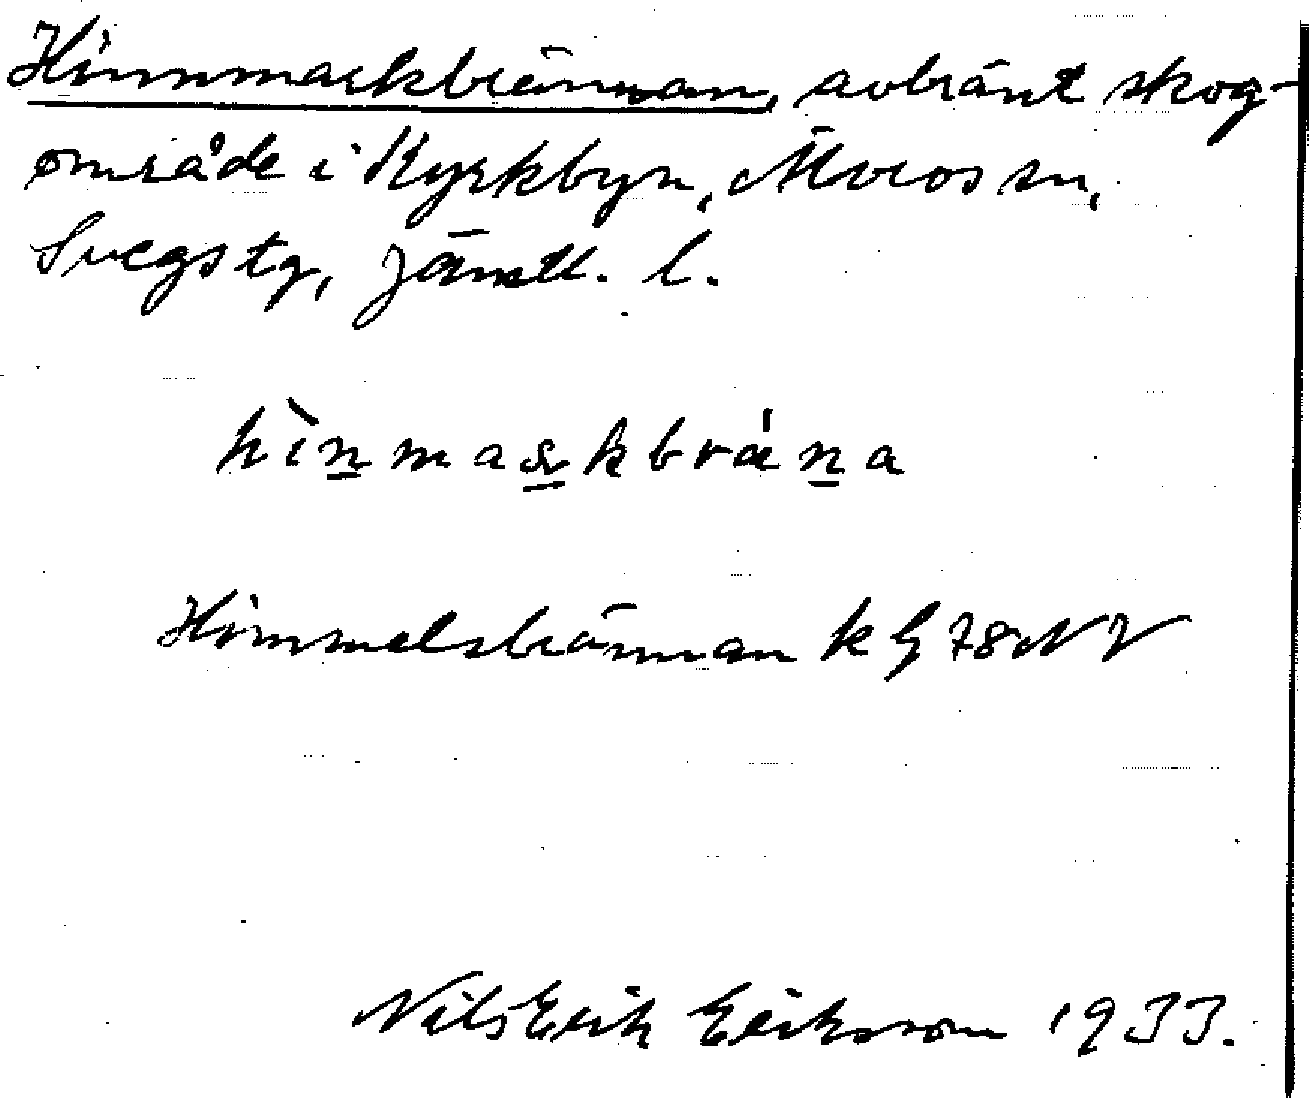 Hinnmarkbrännan, avbränt skog-
område i Kyrkbyn, Älvros sn,
Svegs tg, Jämtl. l.
hìnmarkbrána
Himmelsbrännan k G 78 NV
Nils Erik Eriksson 1933.